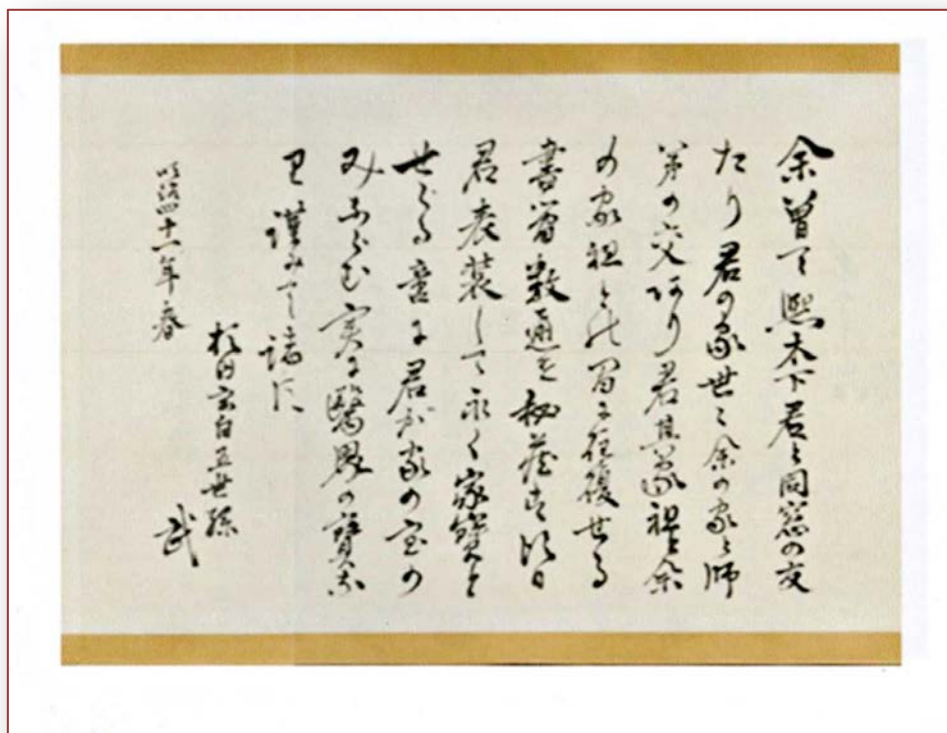 余曽て熈木下君と同窓の友
たり君の家世々余の家と師
弟の交あり君其家祖と余
の家祖との間に往復せる
書翰数通を秘蔵す頃日
君表装して永く家宝と
せらる啻に君が家の宝の
みならむ実に醫界の寳な
り謹みて誌す
明治四十一年春
杉田玄白五世孫
武